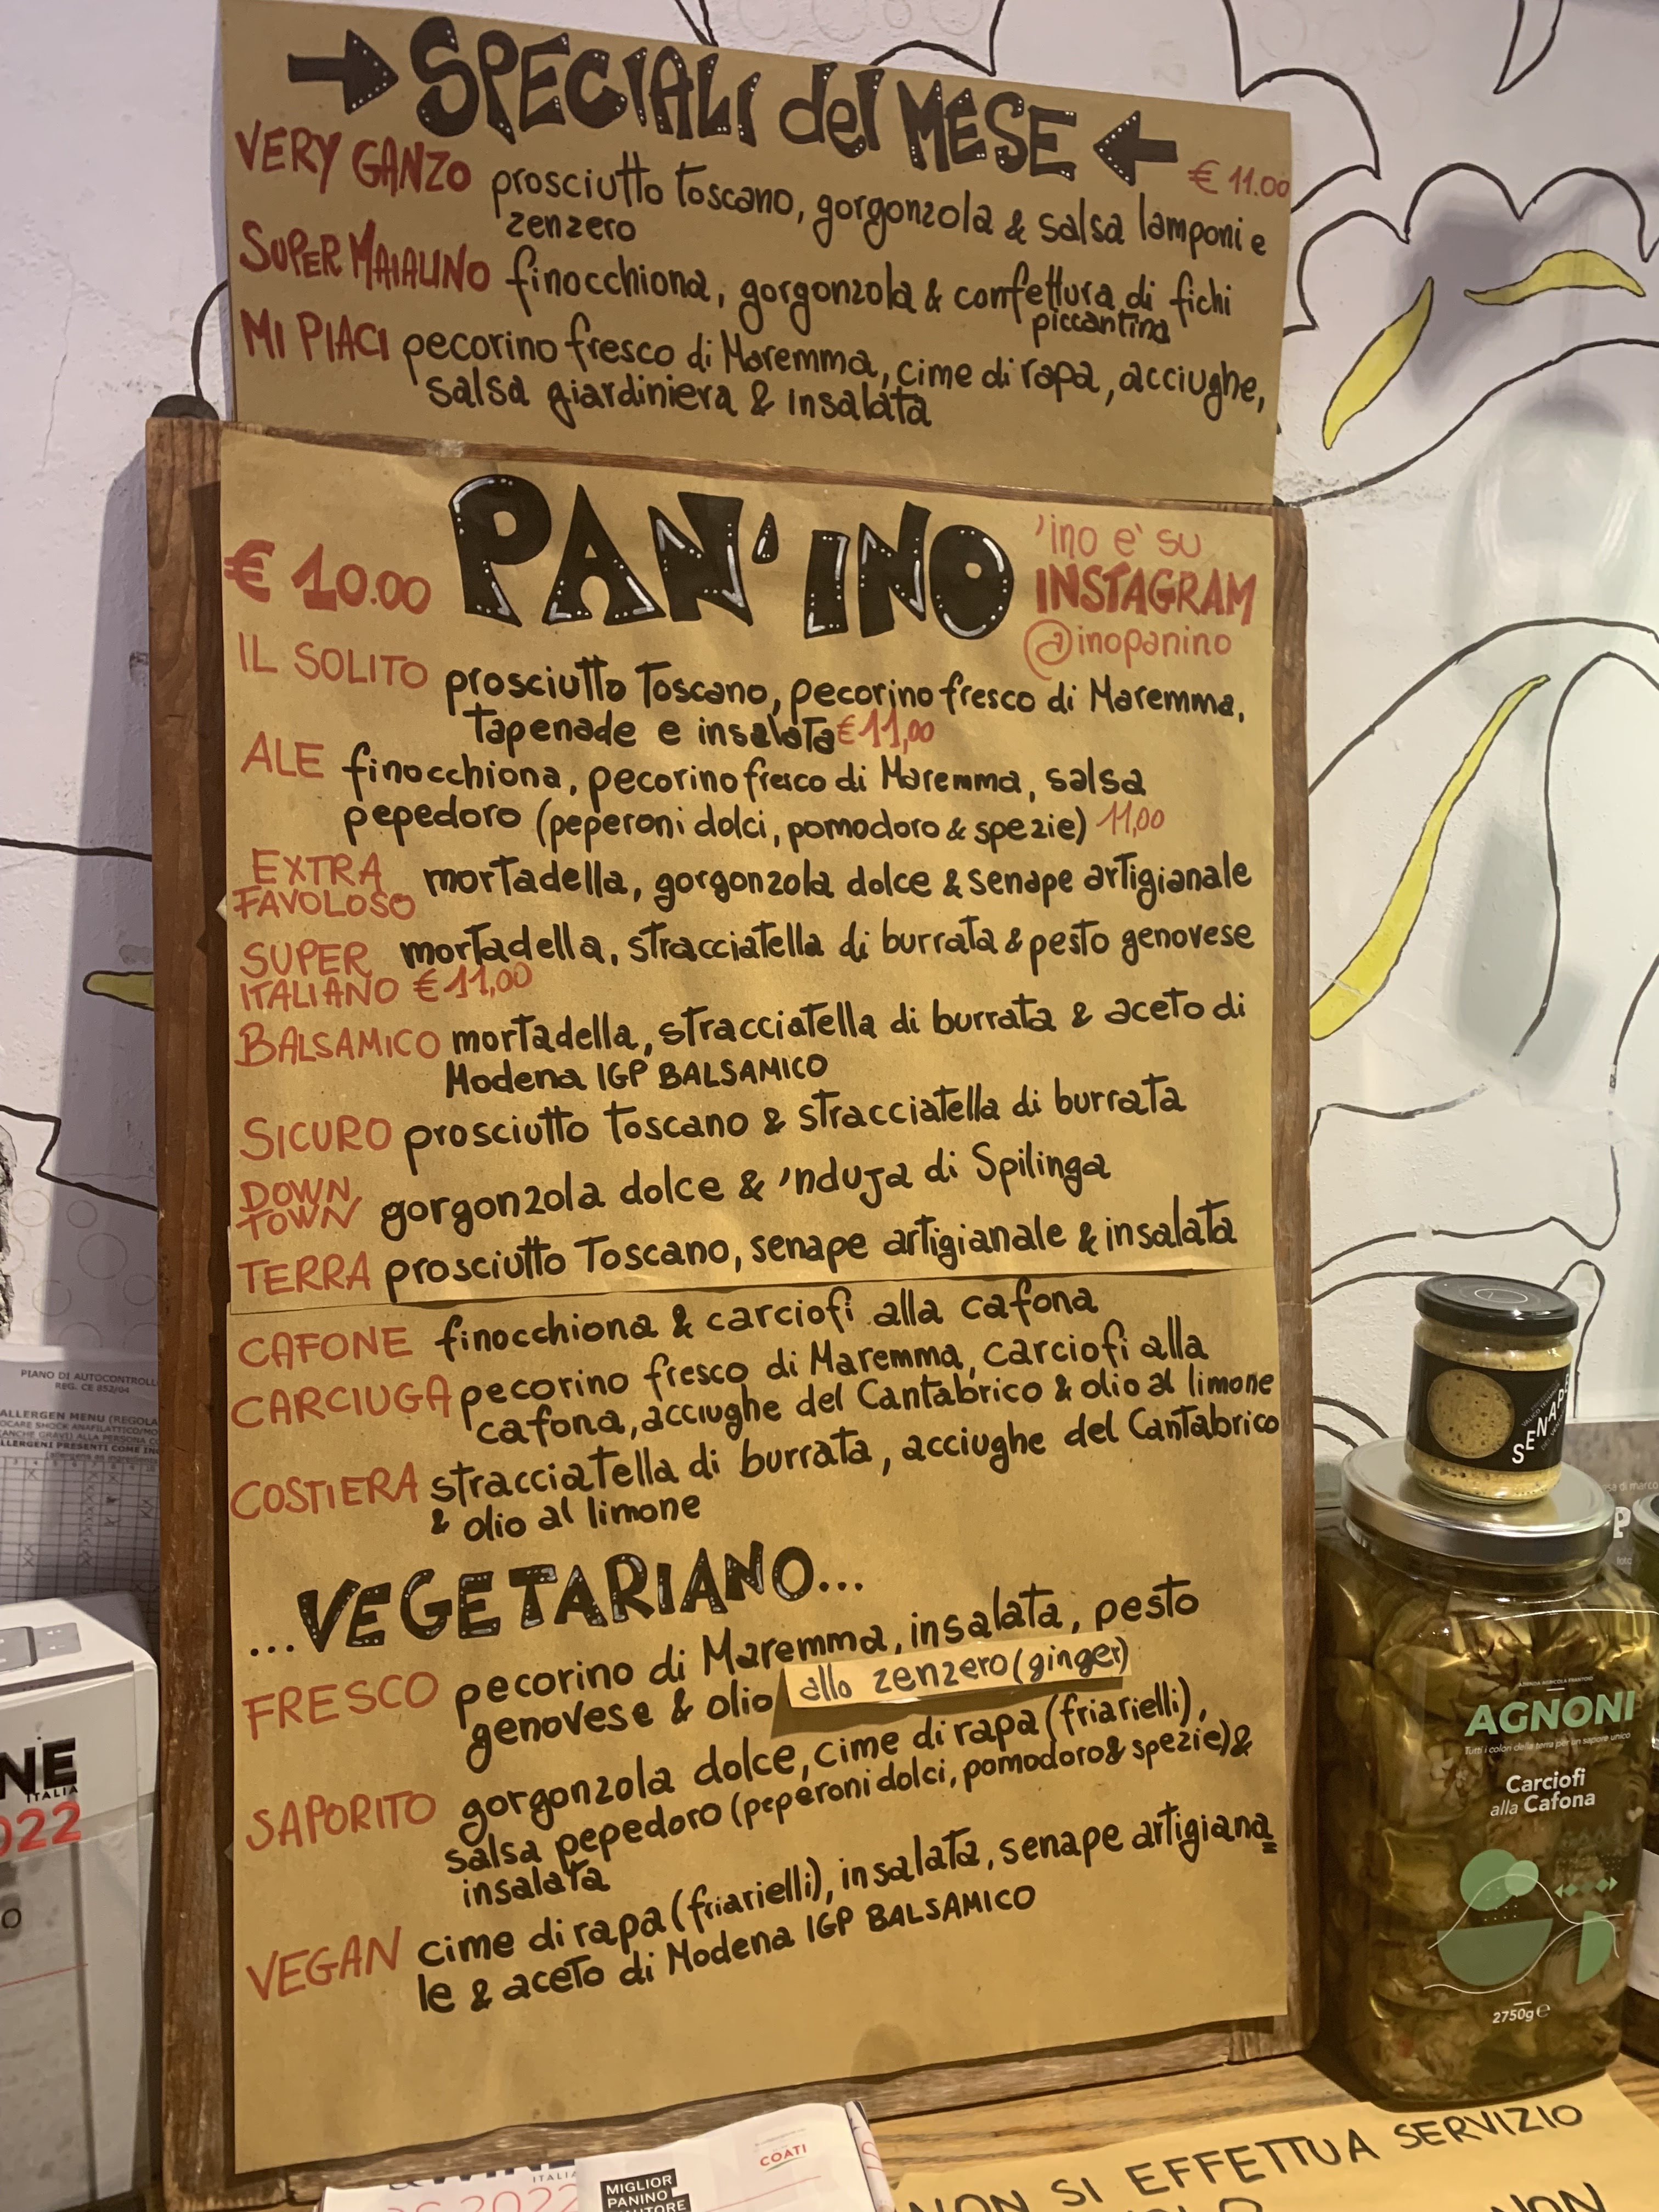 SPECIALI del MESE
€ 11.00
VERY GANZO prosciutto toscano, gorgonzola & salsa lamponi e
zenzero
SUPER MAIALINO finocchiona, gorgonzola & confettura di fichi
piccantina
MI PIACI pecorino fresco di Maremma, cime di rapa, acciughe,
salsa giardiniera & insalata
€ 10.00
PAN'INO
'ino e' su
INSTAGRAM
@inopanino
IL SOLITO prosciutto Toscano, pecorino fresco di Maremma,
tapenade e insalata €11,00
ALE finocchiona, pecorino fresco di Maremma, salsa
pepedoro (peperoni dolci, pomodoro & spezie) 11,00
EXTRA
FAVOLOSO mortadella, gorgonzola dolce & senape artigianale
SUPER mortadella, stracciatella di burrata & pesto genovese
ITALIANO €11,00
BALSAMICO mortadella, stracciatella di burrata & aceto di
Modena IGP BALSAMICO
SICURO prosciutto toscano & stracciatella di burrata
DOWN
TOWN gorgonzola dolce & 'nduja di Spilinga
TERRA prosciutto Toscano, senape artigianale & insalata
CAFONE finocchiona & carciofi alla cafona
CARCIUGA pecorino fresco di Maremma, carciofi alla
cafona, acciughe del Cantabrico & olio al limone
COSTIERA stracciatella di burrata, acciughe del Cantabrico
& olio al limone
...VEGETARIANO...
FRESCO pecorino di Maremma, insalata, pesto
genovese & olio allo zenzero (ginger)
SAPORITO gorgonzola dolce, cime di rapa (friarielli),
salsa pepedoro (peperoni dolci, pomodoro & spezie) &
insalata
VEGAN cime di rapa (friarielli), insalata, senape artigiana
le & aceto di Modena IGP BALSAMICO
PIANO DI AUTOCONTROLL
REG. CE 852/04
ALLERGEN MENU (REGOLA
OCARE SHOCK ANAFILATTICO/MO
ANCHE GRAVI) ALLA PERSONA
LLERGENI PRESENTI COME IN
NE
ITALIA
022
SENAPE
AGNONI
Tutti i colori della terra per un sapore unico
Carciofi
alla Cafona
2750g e
ITALIA
2022
COATI
MIGLIOR
PANINO
NON SI EFFETTUA SERVIZIO
NON